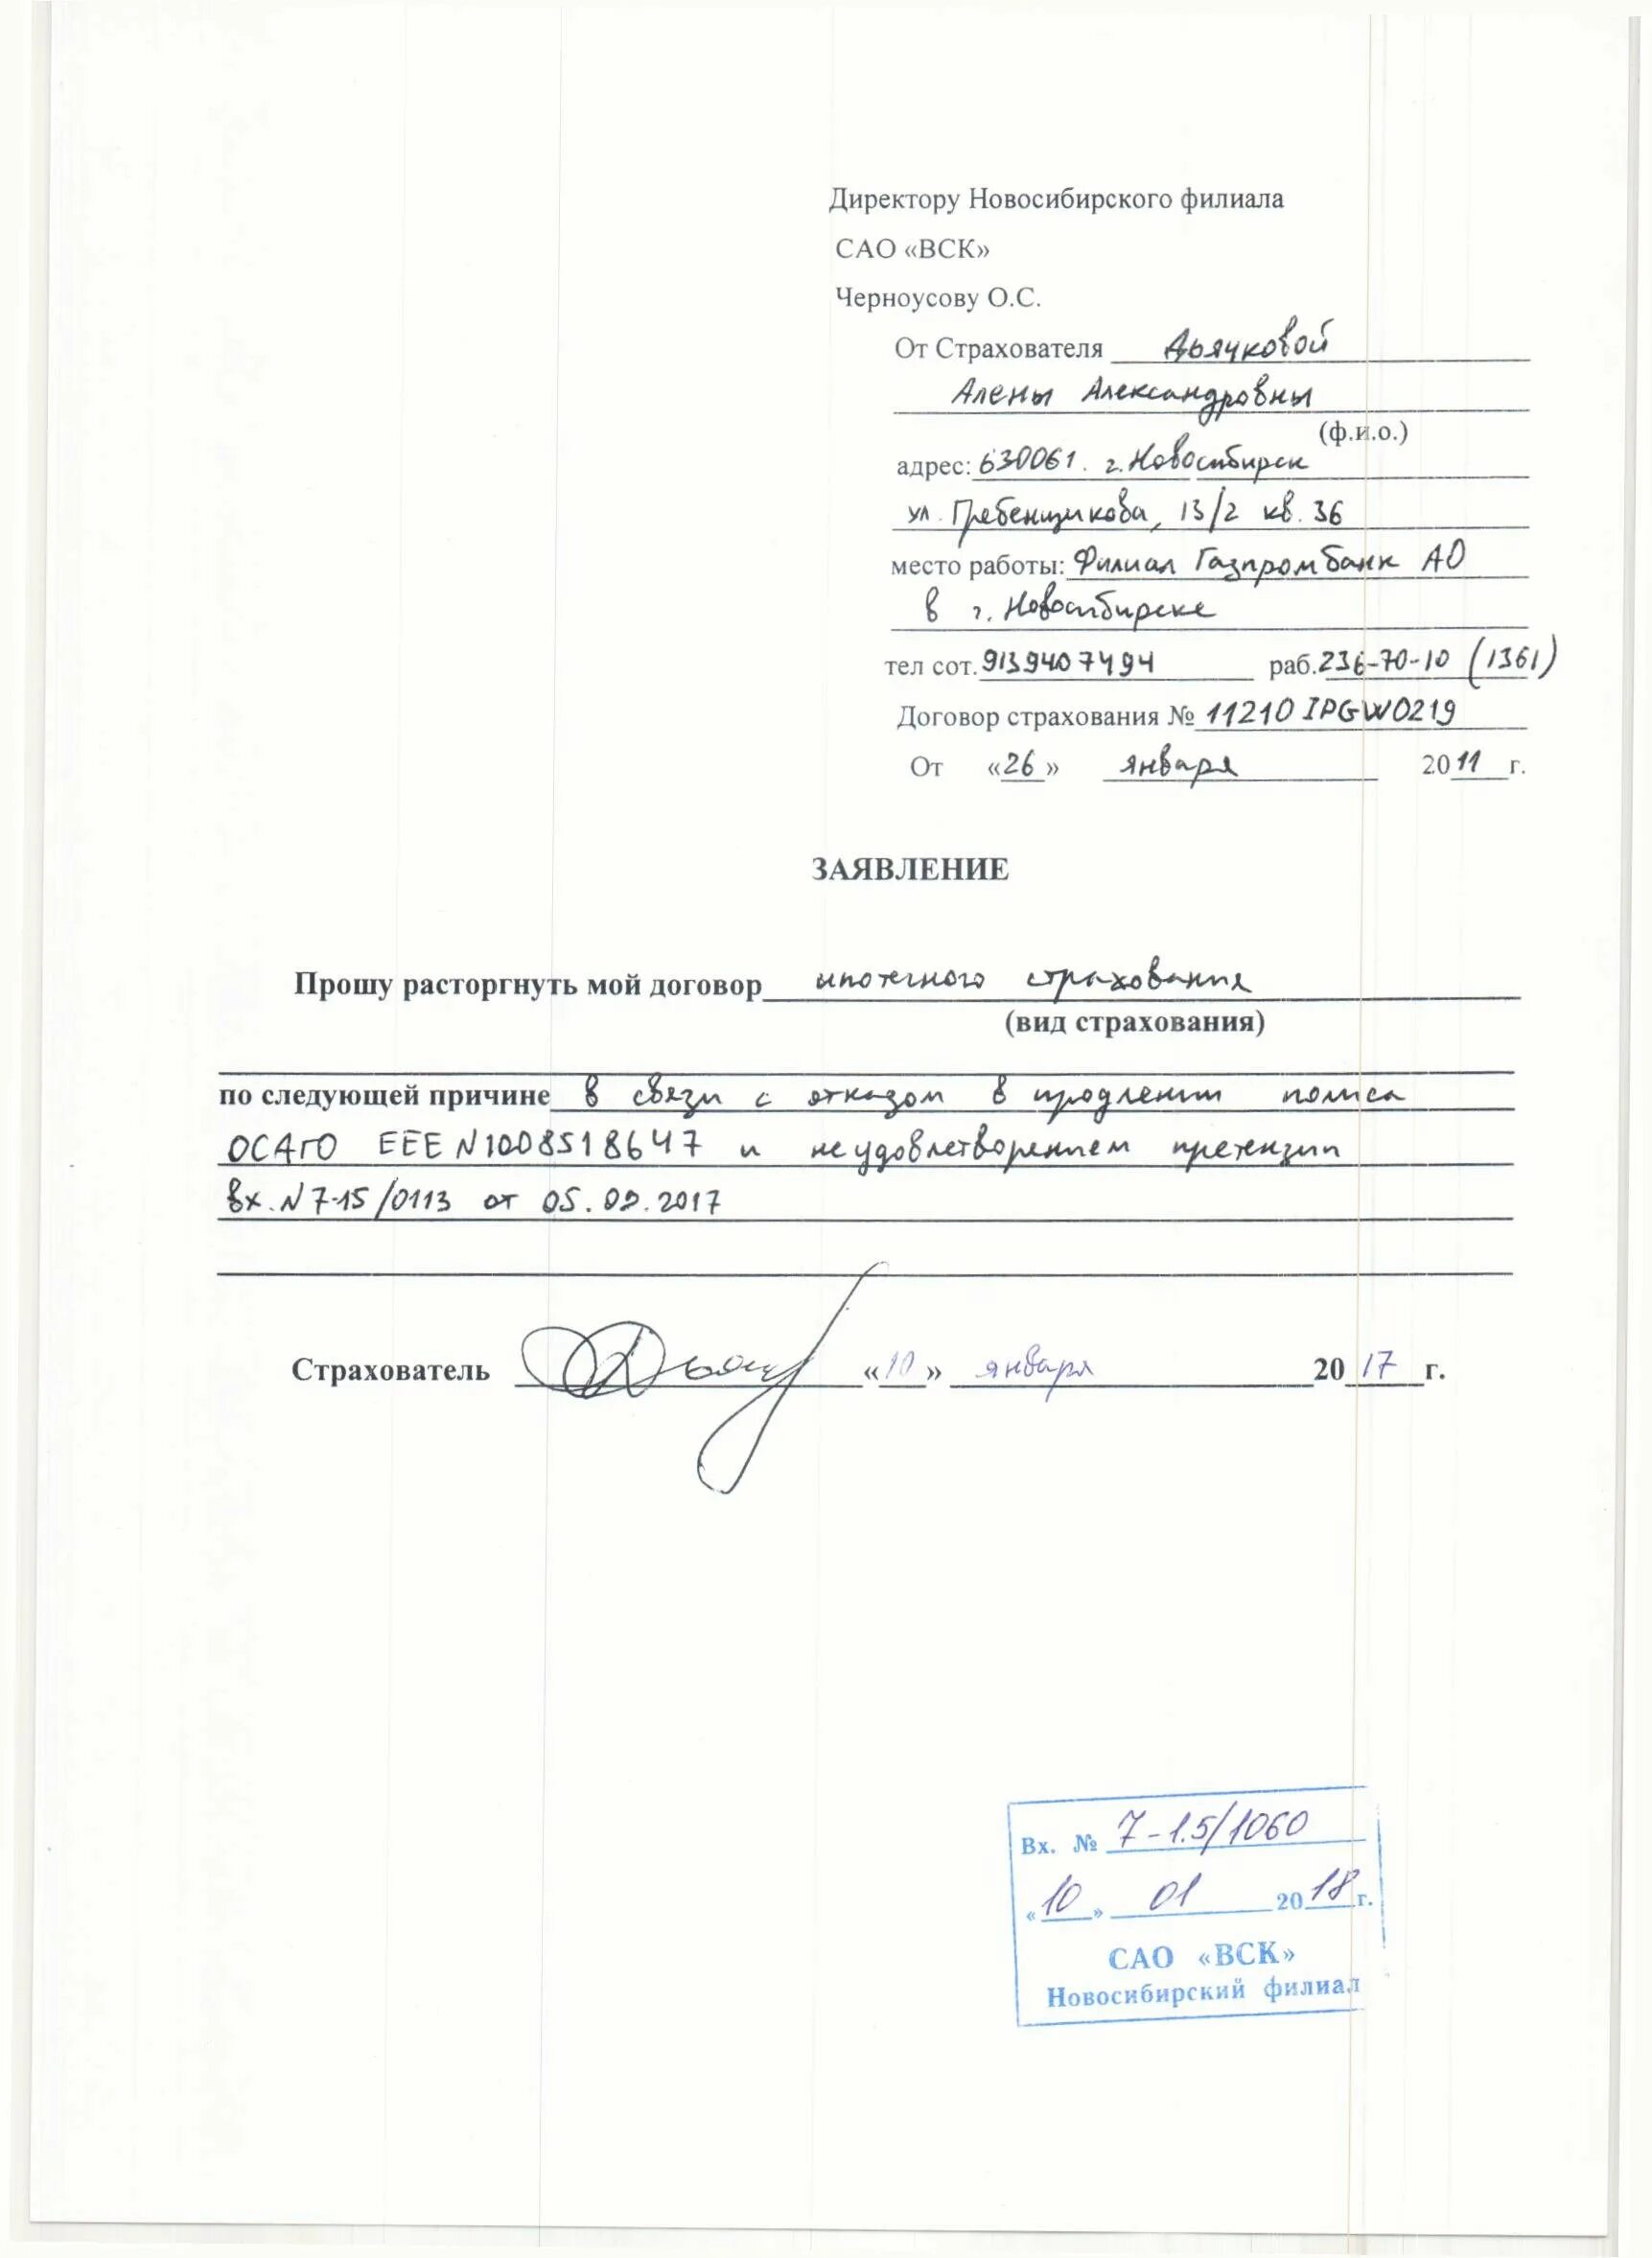 Директору Новосибирского филиала
САО «ВСК»
Черноусову О.С.
От Страхователя Дьячковой
Алены Александровны
(ф.и.о.)
адрес: 630061. г. Новосибирск
ул. Гребенщикова, 13/2 кв. 36
место работы: Филиал Газпромбанк АО
в г. Новосибирске
тел сот. 9139407494 раб. 236-70-10 (1361)
Договор страхования № 11210IPGW0219
От «26» января 2011 г.
ЗАЯВЛЕНИЕ
Прошу расторгнуть мой договор ипотечного страхования
(вид страхования)
по следующей причине в связи с отказом в продлении полиса
ОСАГО ЕЕЕ N1008518647 и неудовлетворением претензии
вх. N 7-15/0113 от 05.09.2017
Страхователь «10» января 2017 г.
Вх. № 7-1.5/1060
«10» 01 2018 г.
САО «ВСК»
Новосибирский филиал